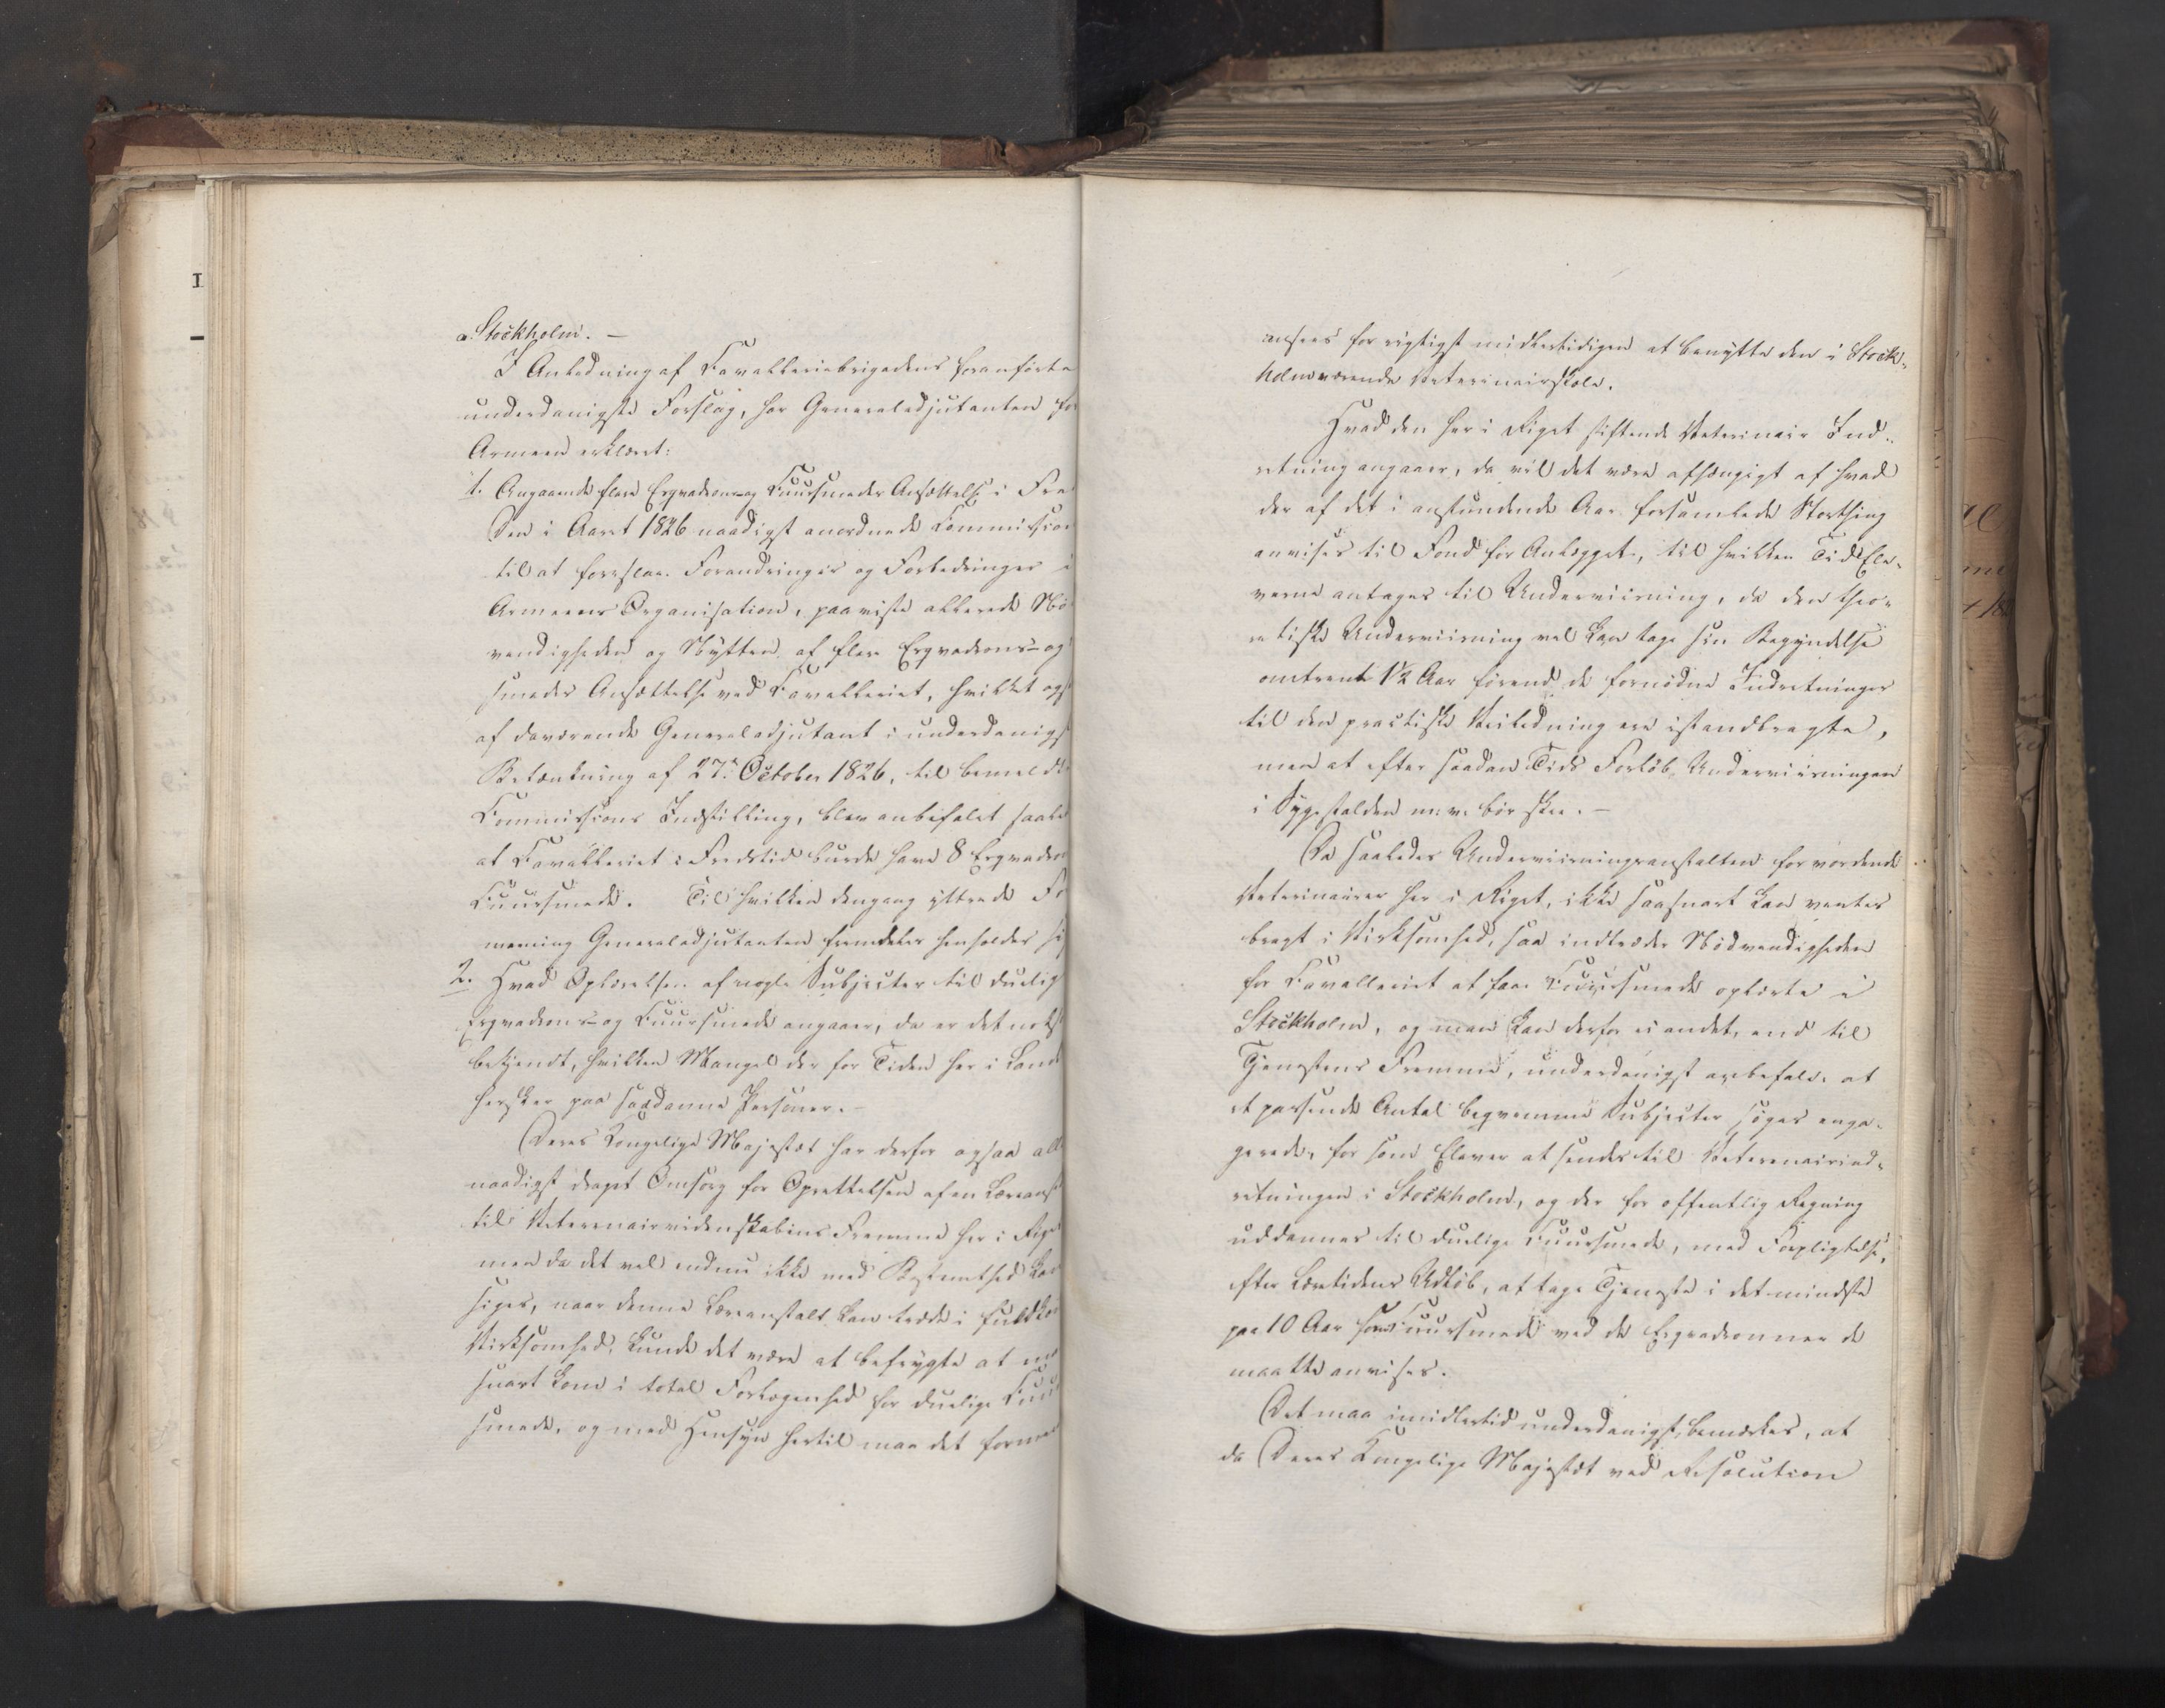 Stockholm. –
I Anledning af Cavalleriebrigadens foranførte
underdanigste Forslag, har Generaladjutanten for
Armeen erklæret:
1. Angaaende flere Esqvadrons- og Cuursmedes Ansættelse i Fre
Den i Aaret 1826 naadigst anordnede Commission
til at foreslaae Forandringer og Forbedringer i
Armeens Organisation, paaviste allerede Nød
vendigheden og Nytten af flere Esqvadrons- og
smedes Ansættelse ved Cavalleriet, hvilket og
af daværende Generaladjutant i underdanigst
Betænkning af 27. October 1826, til bemeldte
Commissions Indstilling, blev anbefalet saale
at Cavalleriet i Fredstid burde have 8 Esqvadron
Cuursmede. Til hvilken dengang yttrede For
mening Generaladjutanten fremdeles henholder si
2. Hvad Oplærelsen af nogle Subjecter til duelig
Esqvadrons- og Cuursmede angaaer, da er det noks
bekjendt, hvilken Mangel der for Tiden her i Land
hersker paa saadanne Personer. –
Deres Kongelige Majestæt har derfor ogsaa all
naadigst draget Omsorg for Oprettelsen af en Læreanst
til Veterinairvidenskabens Fremme her i Riget
men da det vel endnu ikke med Bestemthed kan
siges, naar denne Læreanstalt kan træde i fuldkom
Virksomhed, kunde det være at befrygte at m
snart kom i total Forlegenhed for duelige Cuur
smede, og med Hensyn hertil maa det forme
ansees for rigtigst midlertidigen at benytte den i Stock-
holm værende Veterinairskole.
Hvad den her i Riget stiftende Veterinair Ind-
retning angaaer, da vil det være afhængigt af hvad
der af det i anstundende Aar forsamlede Storthing
anvises til Fond for Anlægget, til hvilken Tid Ele-
verne antages til Underviisning, da den theo-
retiske Underviisning vel kan tage sin Begyndelse
omtrent 1½ Aar førend de fornødne Indretninger
til den practiske Veiledning ere istandbragte,
men at efter saadan Tids Forløb, Underviisningen
i Sygestalden m: v: bør skee. –
Da saaledes Underviisningsanstalten for vordende
Veterinairer her i Riget, ikke saasnart kan ventes
bragt i Virksomhed, saa indtræder Nødvendigheden
for Cavalleriet at faae Cuursmede oplærte i
Stockholm, og man kan derfor ei andet, end til
Tjenestens Fremme, underdanigst anbefale, at
et passende Antal beqvemme Subjecter søges enga-
gerede, for som Elever at sendes til Veterinairind-
retningen i Stockholm, og der for offentlig Regning
uddannes til duelige Cuursmede, med Forpligtelse,
efter Læretidens Udløb, at tage Tjeneste i det mindste
paa 10 Aar som Cuursmede ved de Esqvadronner de
maatte anvises.
Det maa imidlertid underdanigst bemærkes, at
da Deres Kongelige Majestæt ved Resolution